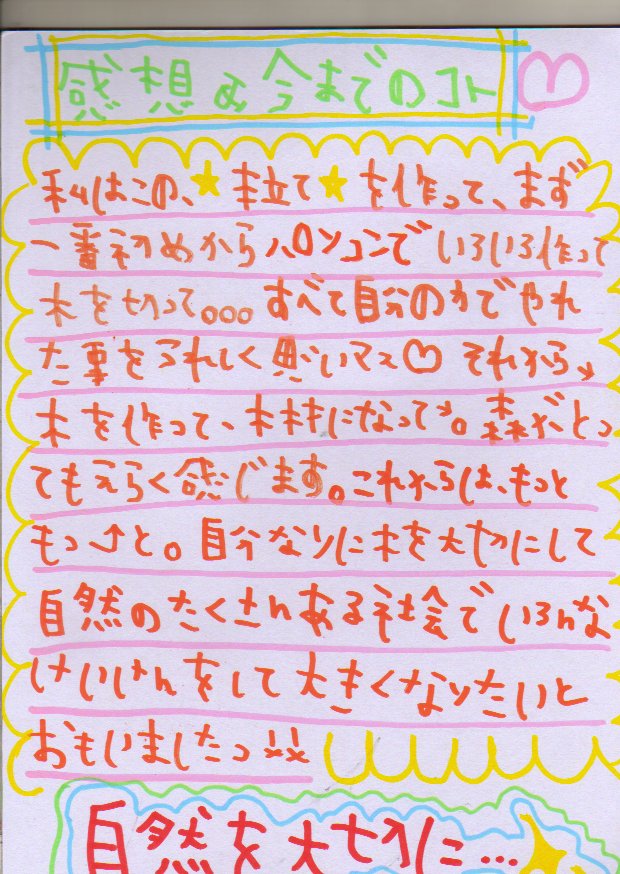 感想&今までのコト
私はこの、★本立て★を作って、まず
一番初めからパソコンでいろいろ作って
木を切って。。。すべて自分の力でやれ
た事をうれしく思いマス♡それから、
木を作って、林になって。森がとっ
てもえらく感じます。これからは、もっと
もっ↑と。自分なりに木を大切にして
自然のたくさんある社会でいろんな
けいけんをして大きくなりたいと
おもいましたっ!!
自然を大切に…